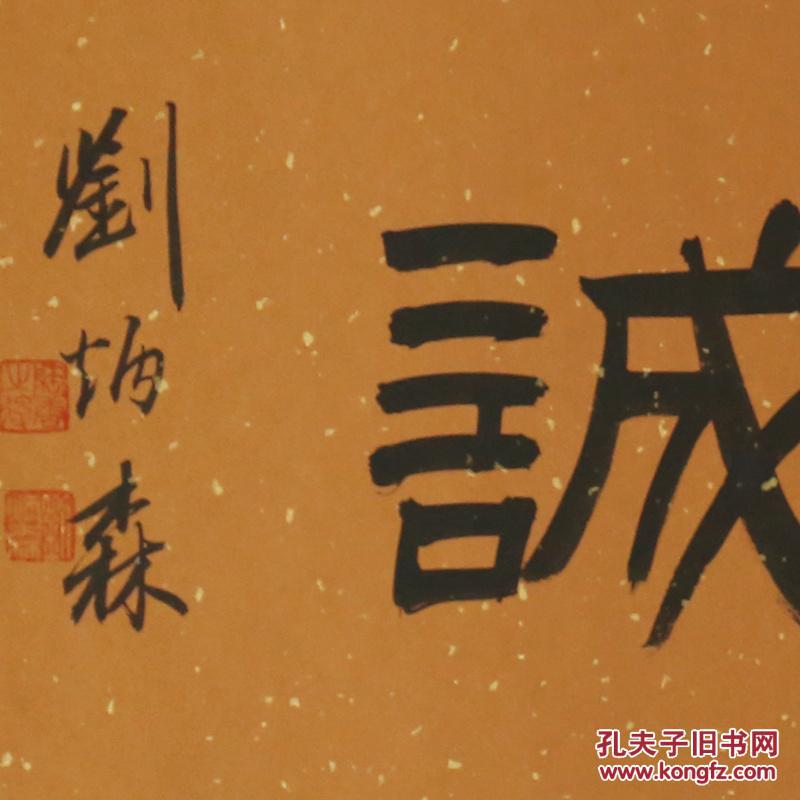 誠
劉炳森
孔夫子旧书网
www.kongfz.com